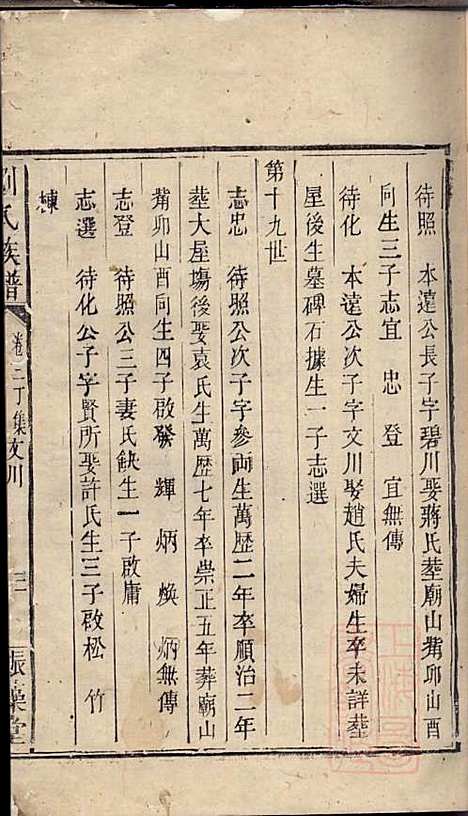 待照　本遠公長子字碧川娶蔣氏塟廟山觜卯山酉
向生三子志宜　忠　登　宜無傳
待化　本遠公次子字文川娶趙氏夫婦生卒未詳塟
屋後生墓碑石據生一子志選
第十九世
志忠　待照公次子字參両生萬歷二年卒順治二年
塟大屋塲後娶袁氏生萬歷七年卒崇正五年葬廟山
觜卯山酉向生四子啟發　輝　炳　煥　炳無傳
志登　待照公三子妻氏缺生一子啟庸
志選　待化公子字賢所娶許氏生三子啟松　竹
棟
劉氏族譜　卷二丁集文川　三　振藻堂